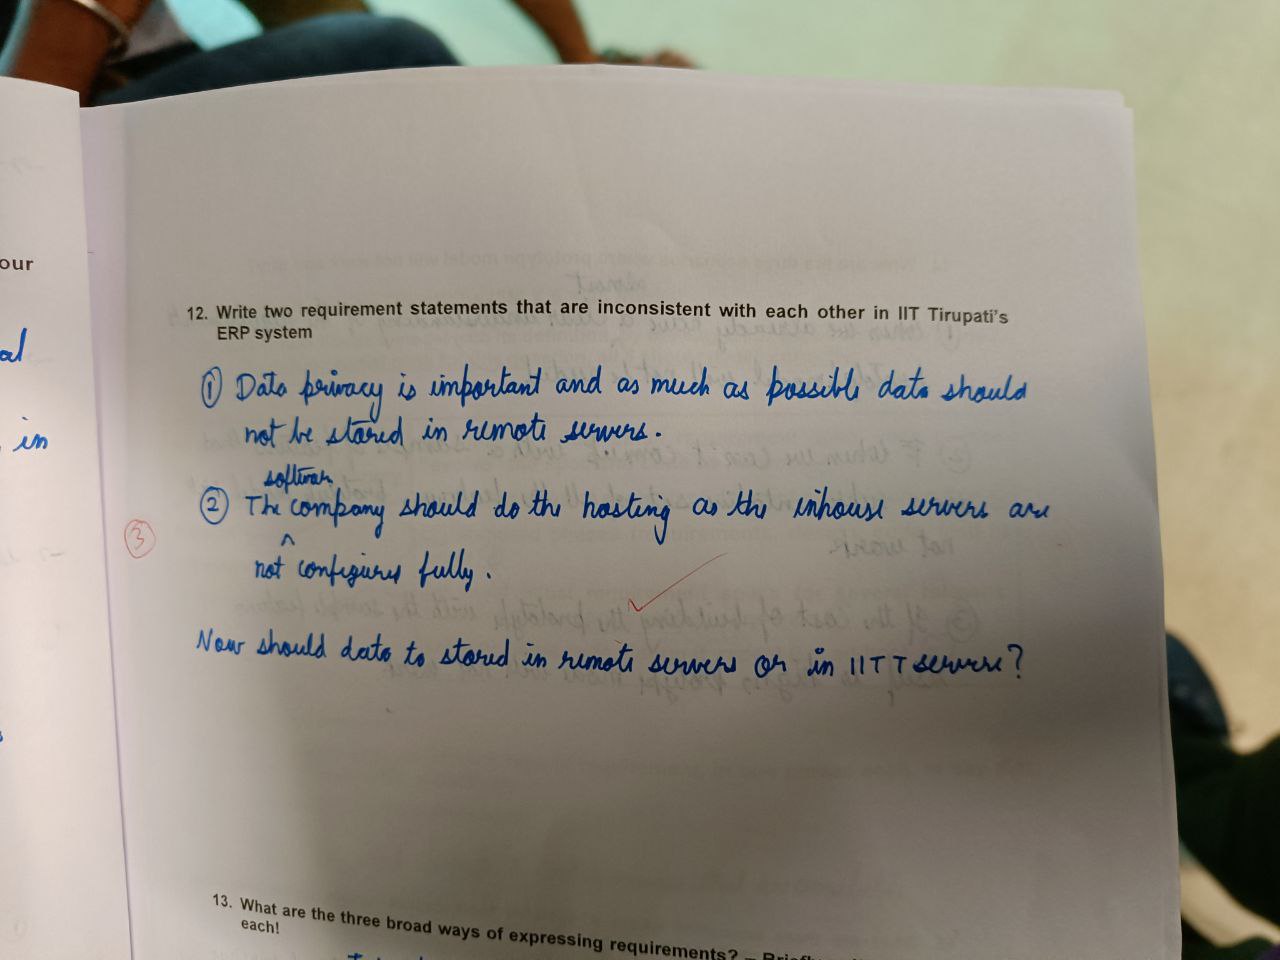 our
al
in
12. Write two requirement statements that are inconsistent with each other in IIT Tirupati's
ERP system
① Data privacy is important and as much as possible data should
not be stored in remote servers.
software
② The ^ company should do the hosting as the inhouse servers are
③
not configured fully.
Now should data to stored in remote servers or in IITT servers?
13. What are the three broad ways of expressing requirements? –
each!